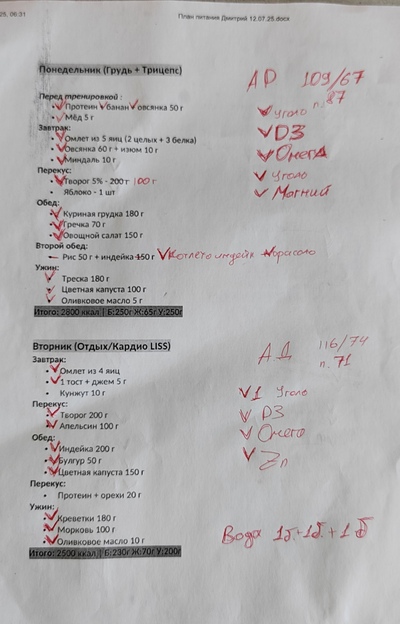 25, 06:31
План питания Дмитрий 12.07.25.docx
Понедельник (Грудь + Трицепс)
АР 109/67
п. 87
Перед тренировкой :
Протеин + банан + овсянка 50 г
Мёд 5 г
Завтрак:
Омлет из 5 яиц (2 целых + 3 белка)
Овсянка 60 г + изюм 10 г
Миндаль 10 г
Перекус:
Творог 5% - 200 г 100 г
Яблоко - 1 шт
Обед:
Куриная грудка 180 г
Гречка 70 г
Овощной салат 150 г
Второй обед:
Рис 50 г + индейка 150 г
Ужин:
Треска 180 г
Цветная капуста 100 г
Оливковое масло 5 г
Итого: 2800 ккал | Б:250г Ж:65г У:250г
Уголь
D3
Омега
Уголь
Магний
Вторник (Отдых/Кардио LISS)
АД 116/74
п. 71
Завтрак:
Омлет из 4 яиц
1 тост + джем 5 г
Кунжут 10 г
Перекус:
Творог 200 г
Апельсин 100 г
Обед:
Индейка 200 г
Булгур 50 г
Цветная капуста 150 г
Перекус:
Протеин + орехи 20 г
Ужин:
Креветки 180 г
Морковь 100 г
Оливковое масло 10 г
Итого: 2500 ккал | Б:230г Ж:70г У:200г
1 Уголь
D3
Омега
Zn
Вода 1б + 1б + 1б